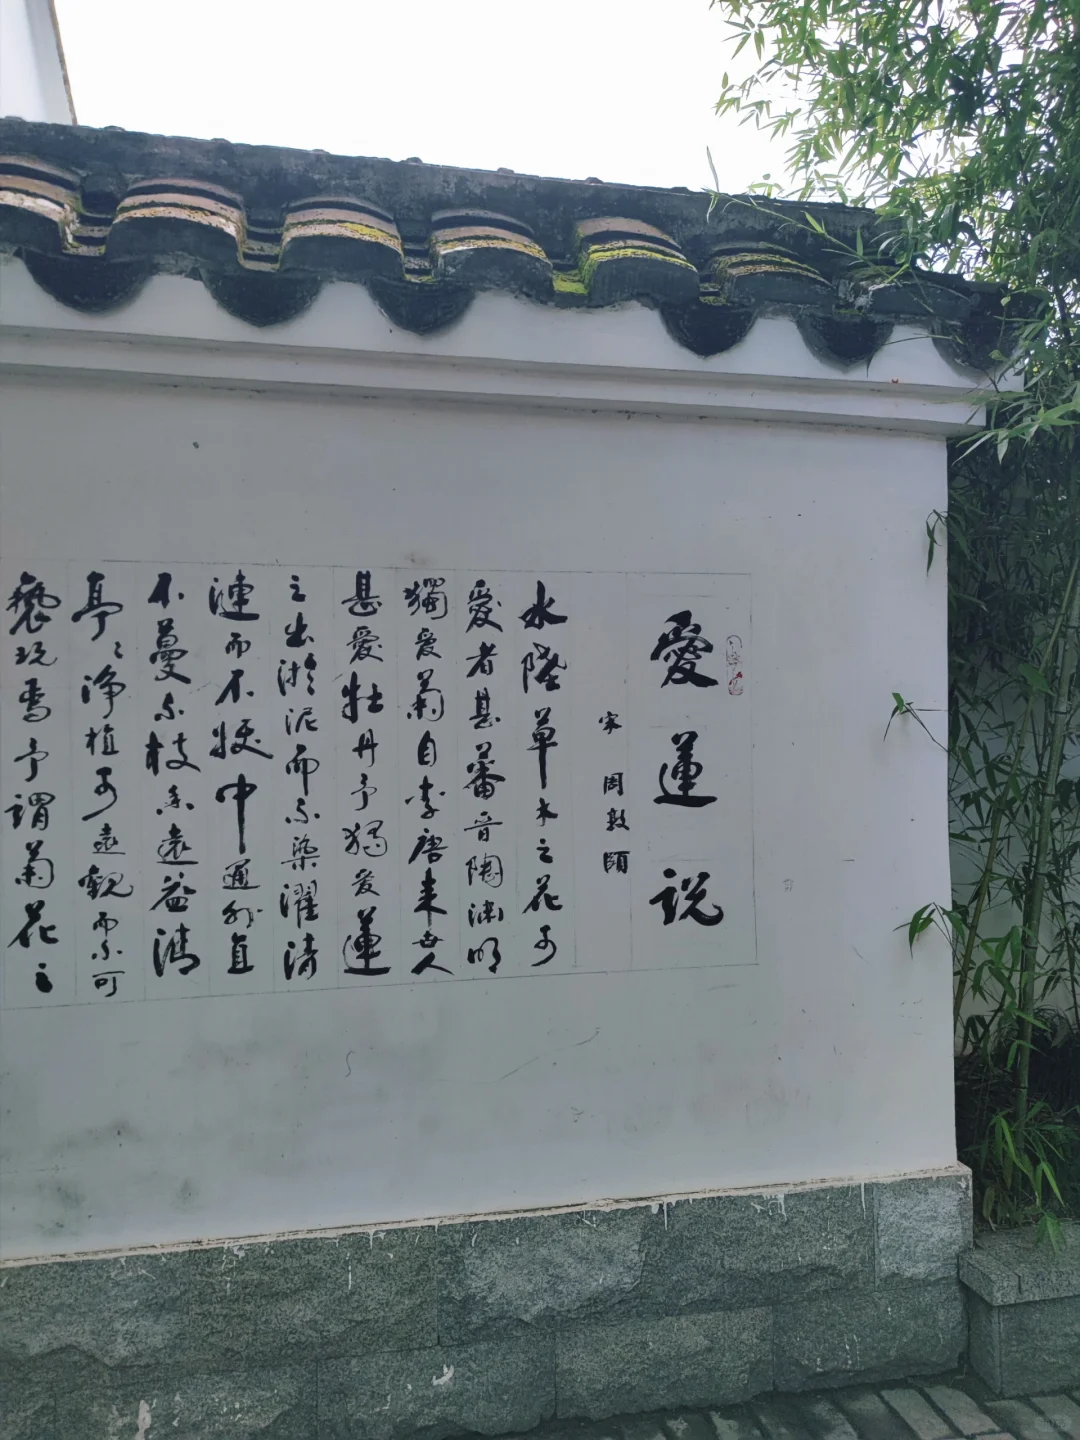 愛蓮說
宋 周敦頤
水陸草木之花可
愛者甚蕃晉陶渊明
獨爱菊自李唐来世人
甚愛牡丹予獨爱蓮
之出淤泥而不染濯清
漣而不妖中通外直
不蔓不枝香遠益清
亭亭净植可遠觀而不可
褻玩焉予謂菊花之